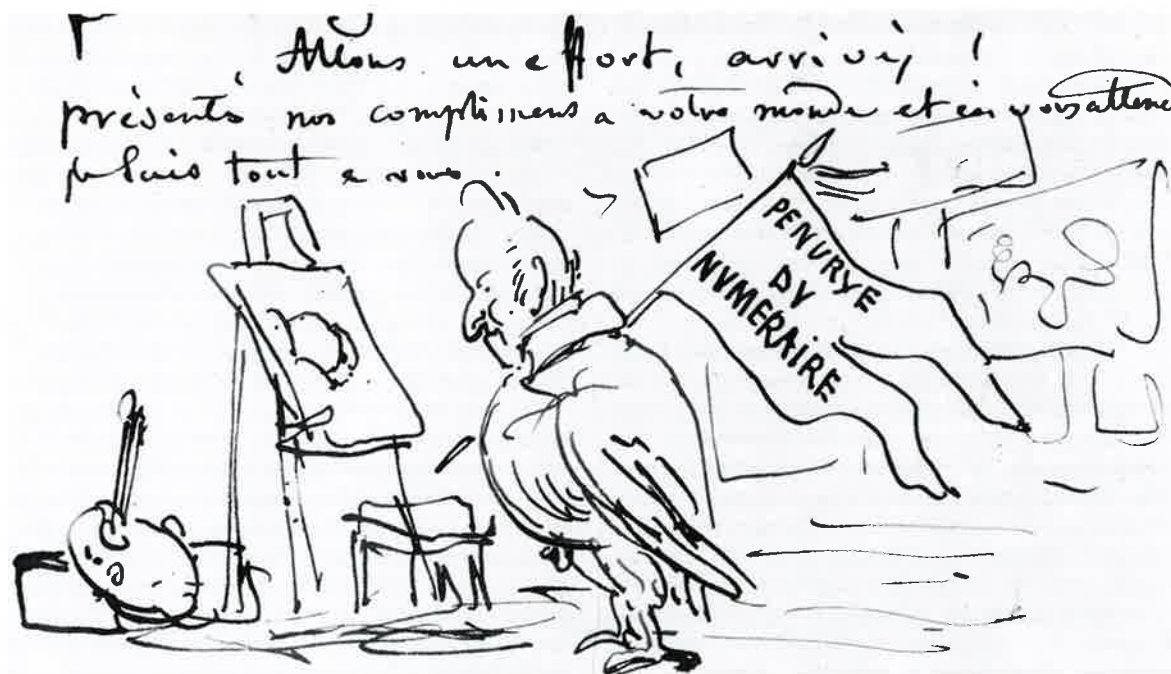 Allons un effort, arrivez !
présentés nos compliments a votre monde et en vous attend
je suis tout a vous.
PENURYE
DV
NVMÉRAIRE